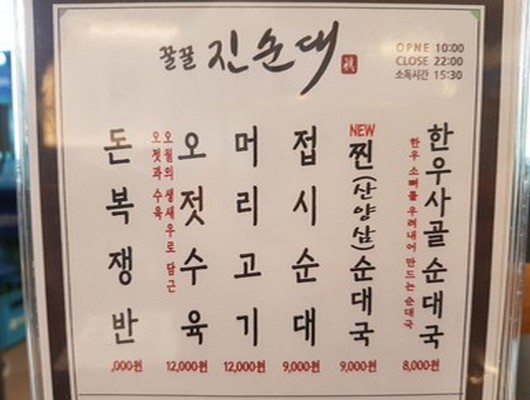 꿀꿀 진순대
OPNE 10:00
CLOSE 22:00
소독시간 15:30
한우사골 순대국
한우 소뼈를 우려내어 만드는 순대국
8,000원
NEW
찐(산양삼)순대국
9,000원
접시순대
9,000원
머리고기
12,000원
오젓수육
오월의 생새우로 담근
오젓과 수육
12,000원
돈복쟁반
,000원